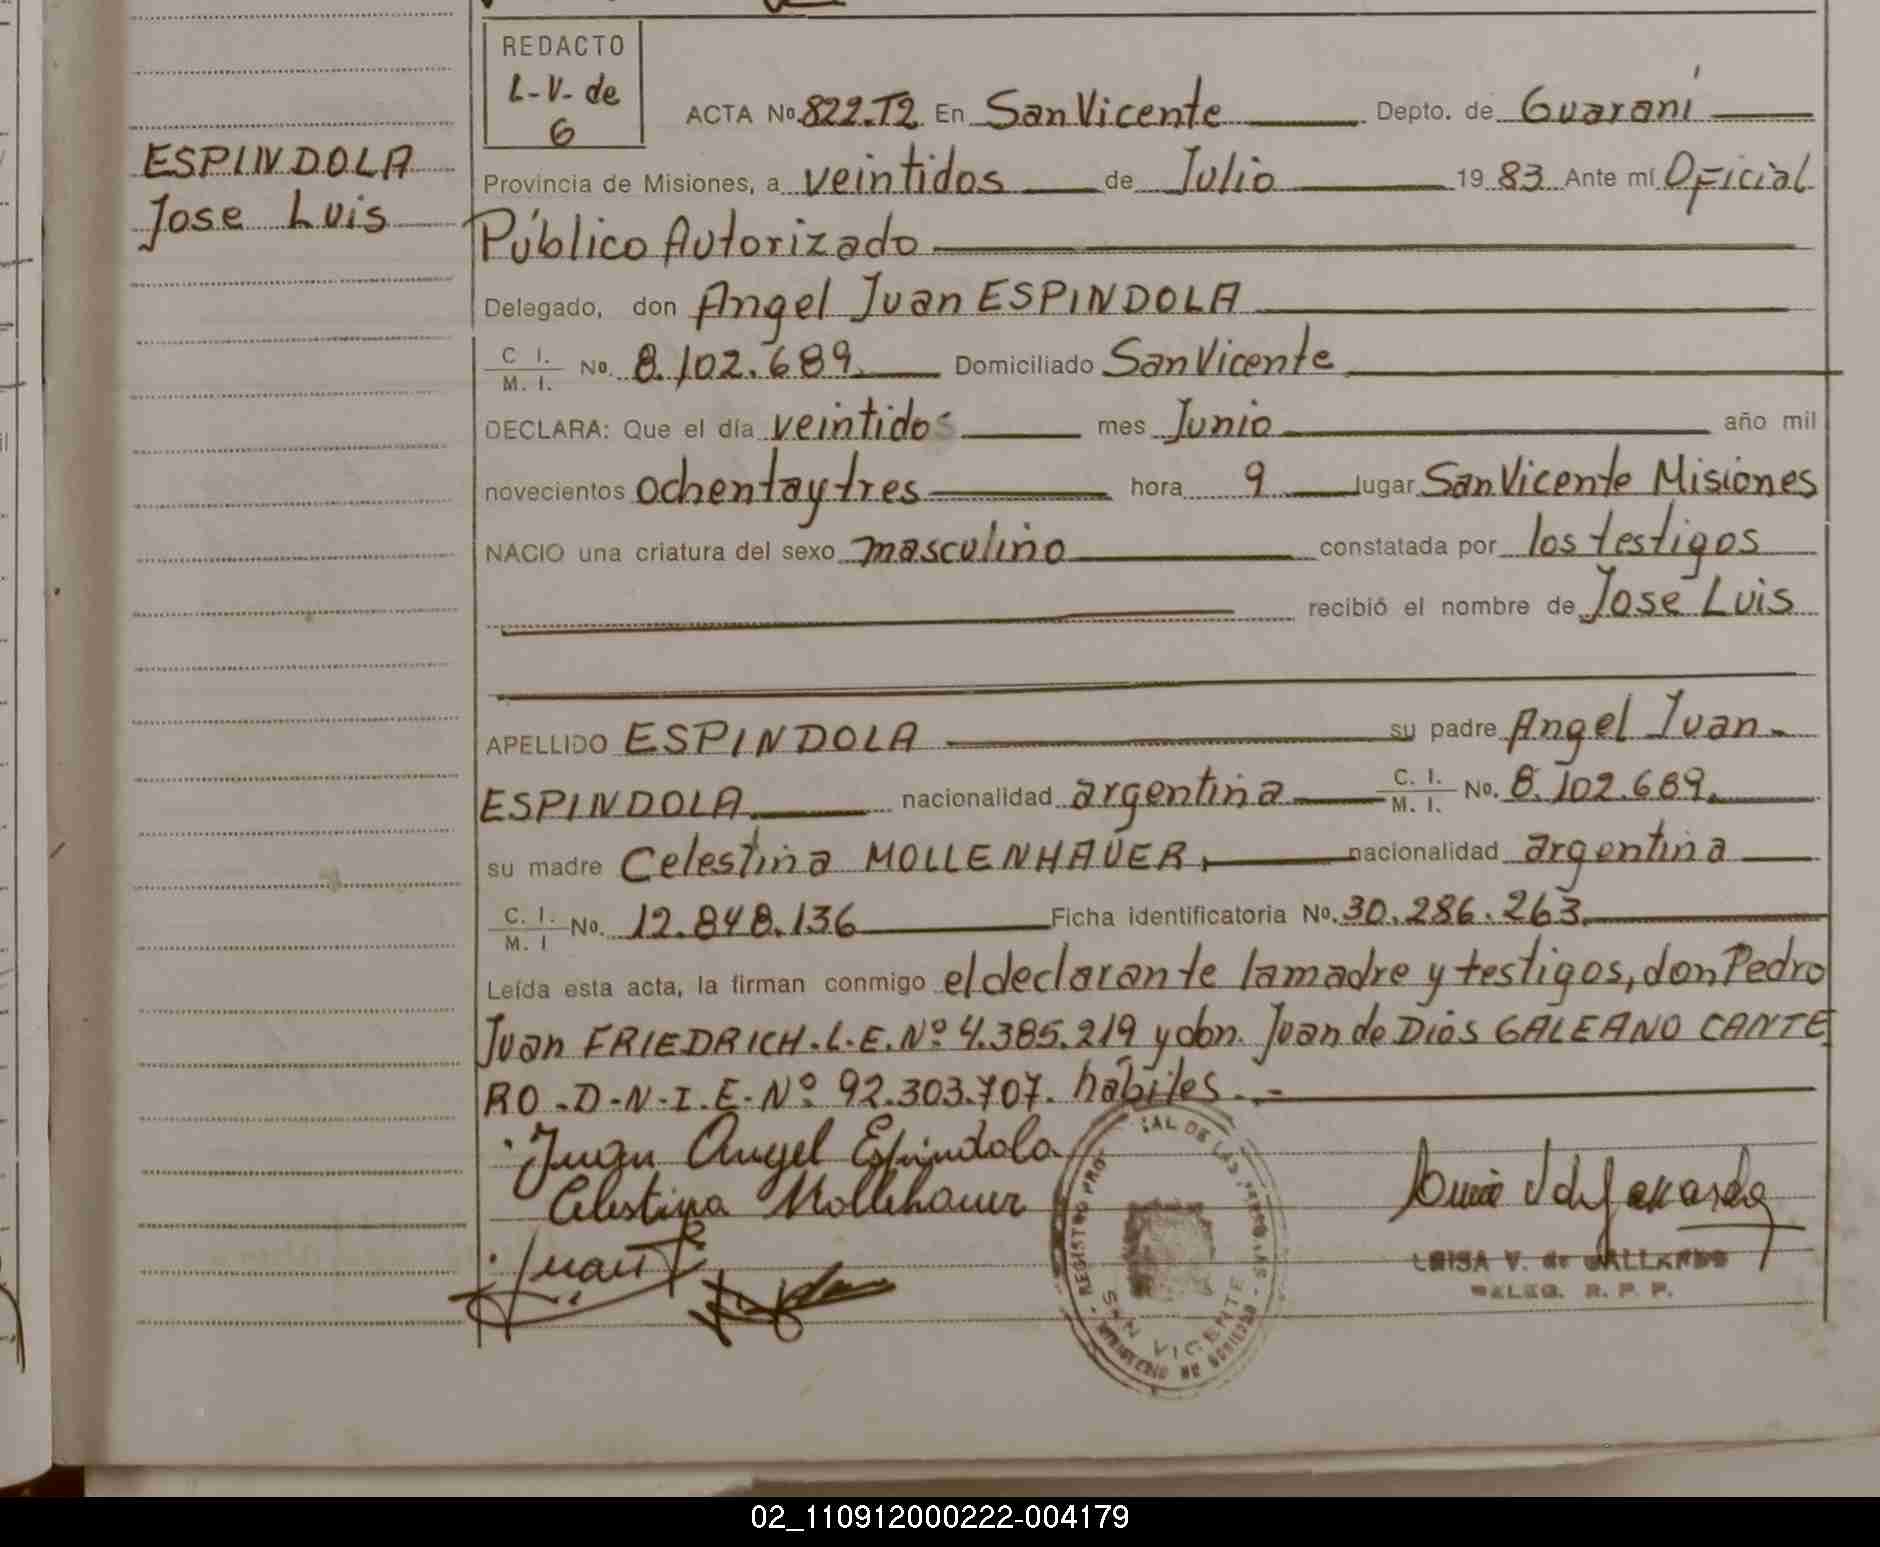 REDACTO
L-V- de
G
ESPINDOLA
Jose Luis
ACTA No. 822-T2 En San Vicente Depto. de Guaraní
Provincia de Misiones, a veintidos de Julio 19 83 Ante mí Oficial
Público Autorizado
Delegado, don Angel Juan ESPINDOLA
C. I. / M. I. No. 8.102.689. Domiciliado San Vicente
DECLARA: Que el día veintidos mes Junio año mil
novecientos ochentaytres hora 9 lugar San Vicente Misiones
NACIO una criatura del sexo masculino constatada por los testigos
recibió el nombre de Jose Luis
APELLIDO ESPINDOLA su padre Angel Juan
ESPINDOLA nacionalidad argentina C. I. / M. I. No. 8.102.689.
su madre Celestina MOLLENHAUER, nacionalidad argentina
C. I. / M. I No. 12.848.136 Ficha identificatoria No. 30.286.263.
Leída esta acta, la firman conmigo el declarante la madre y testigos, don Pedro
Juan FRIEDRICH. L.E. Nº 4.385.219 y don. Juan de Dios GALEANO CANTE
RO - D-N-I.E-Nº 92.303.707. hábiles.-
Juan Angel Espindola
Celestina Mollehauer
Juan
LUISA V. de GALLARDO
DELEG. R. P. P.
REGISTRO PRO
IAL DE LAS PERSONAS
SAN VICENTE
MINISTERIO DE GOBIERNO
02_110912000222-004179